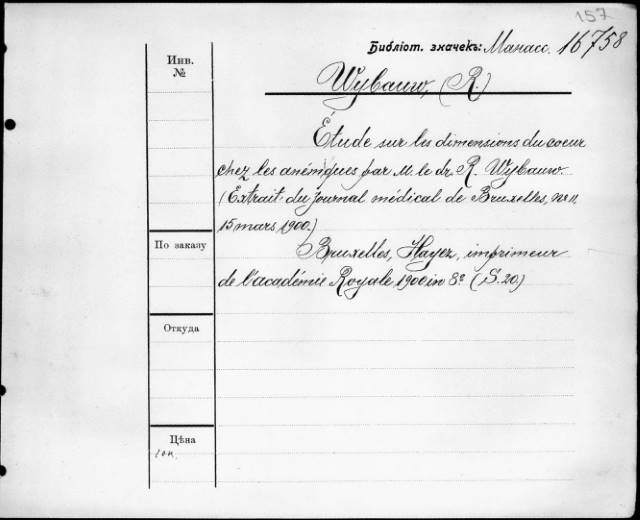 157
Библiот. значекъ: Манасс. 16758
Инв.
№
Wybauw, (R.)
Étude sur les dimensions du coeur
chez les anémiques par M. le dr. R. Wybauw.
(Extrait du Journal médical de Bruxelles, no 11,
15 mars 1900.)
По заказу
Bruxelles, Hayez, imprimeur
de l'académie Royale, 1900 in 8º (S. 20.)
Откуда
Цѣна